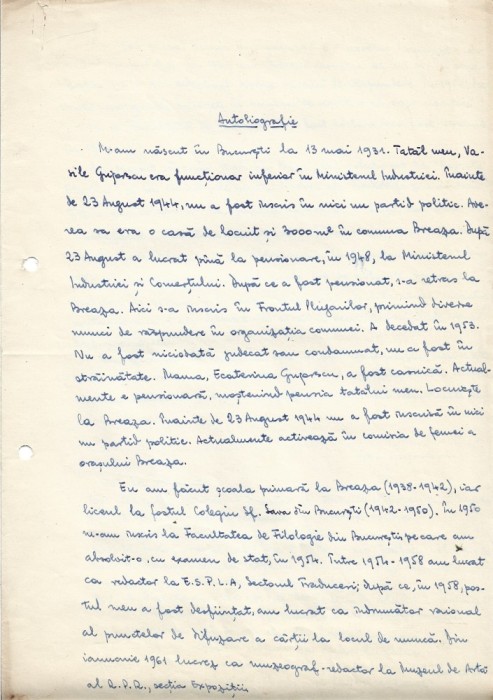 Autobiografie
M-am născut în București la 13 mai 1931. Tatăl meu, Va-
sile Grigorescu era funcționar inferior în Ministerul Industriei. Înainte
de 23 August 1944, nu a fost înscris în nici un partid politic. Ave-
rea sa era o casă de locuit și 3000 m în comuna Breaza. După
23 August a lucrat pînă la pensionare, în 1948, la Ministerul
Industriei și Comerțului. După ce a fost pensionat, s-a retras la
Breaza. Aici s-a înscris în Frontul Plugarilor, primind diverse
munci de răspundere în organizația comunei. A decedat în 1953.
Nu a fost niciodată judecat sau condamnat, nu a fost în
străinătate. Mama, Ecaterina Grigorescu, a fost casnică. Actual-
mente e pensionară, moștenind pensia tatălui meu. Locuiește
la Breaza. Înainte de 23 August 1944 nu a fost înscrisă în nici
un partid politic. Actualmente activează în comisia de femei a
orașului Breaza.
Eu am făcut școala primară la Breaza (1938-1942), iar
liceul la fostul Colegiu Sf. Sava din București (1942-1950). În 1950
m-am înscris la Facultatea de Filologie din București pe care am
absolvit-o, cu examen de stat, în 1954. Între 1954-1958 am lucrat
ca redactor la E.S.P.L.A, Sectorul Traduceri; după ce, în 1958, pos-
tul meu a fost desființat, am lucrat ca îndrumător raional
al punctelor de difuzare a cărții la locul de muncă. Din
ianuarie 1961 lucrez ca muzeograf-redactor la Muzeul de Artă
al R.P.R., secția Expoziții